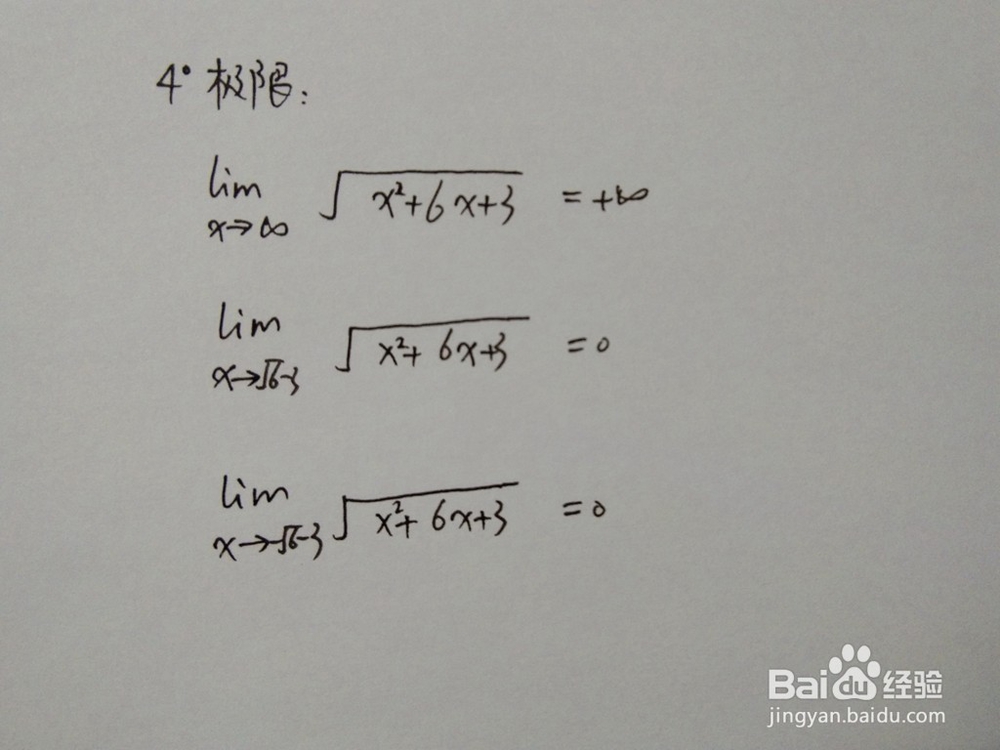 4° 极限:
lim x→∞ √(x²+6x+3) = +∞
lim x→√6-3 √(x²+6x+3) = 0
lim x→-√6-3 √(x²+6x+3) = 0
Baidu 经验
jingyan.baidu.com